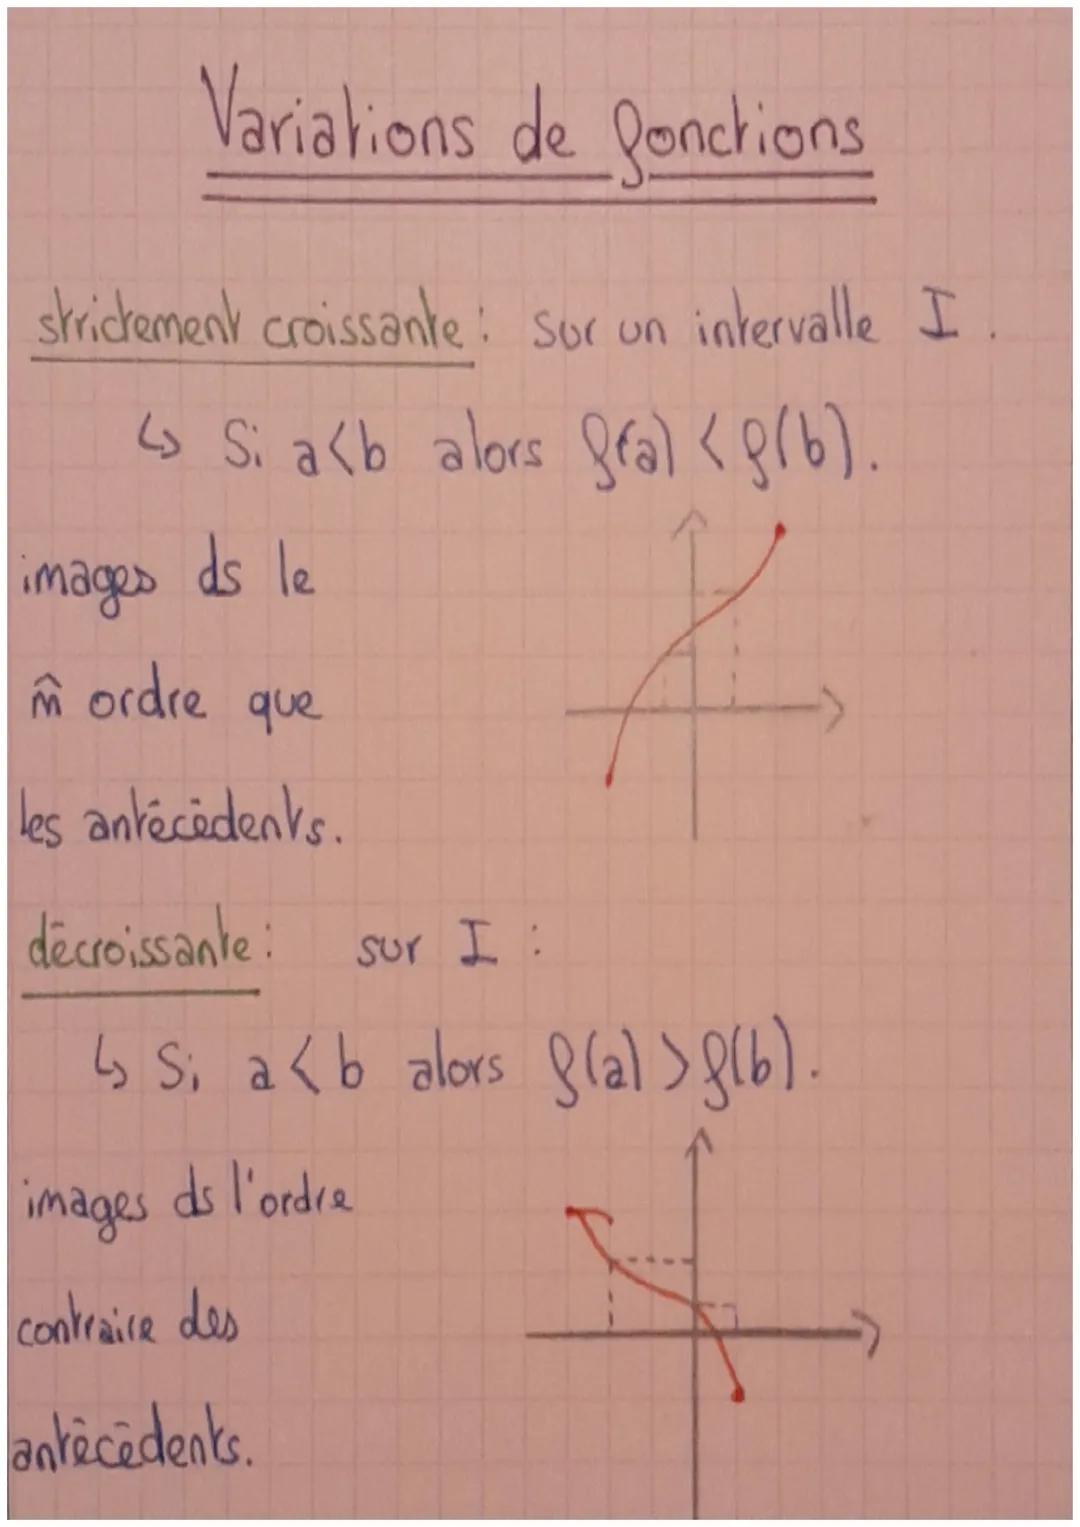 Variations de fonctions
strictement croissante : sur un intervalle I.
↳ Si a<b alors f(a) < f(b).
images ds le
m̂ ordre que
les antécédents.
décroissante : sur I :
↳ Si a < b alors f(a) > f(b).
images ds l'ordre
contraire des
antécédents.